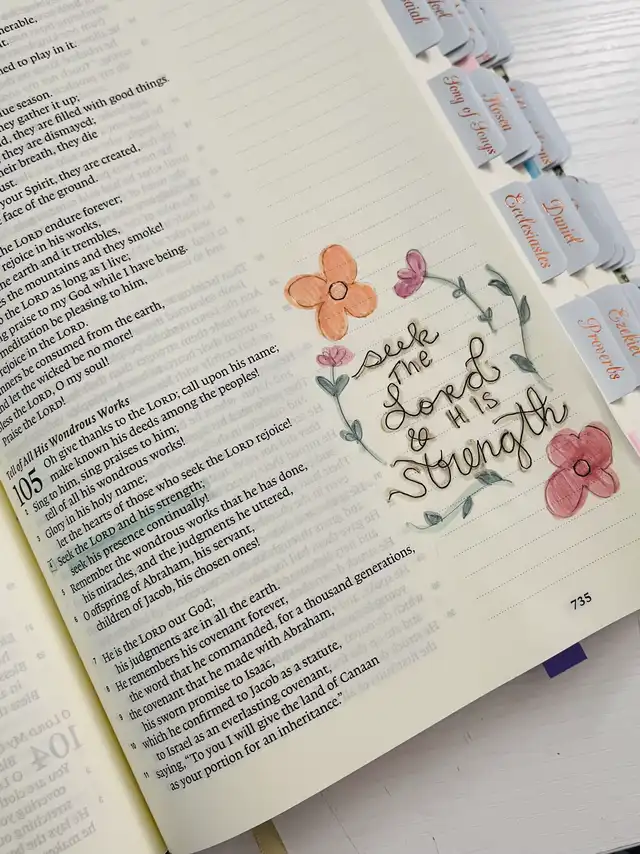 nerable,
ned to play in it.
ue season.
they gather it up;
they are filled with good things.
they are dismayed;
their breath, they die
ust.
your Spirit, they are created,
face of the ground.
the LORD endure forever;
rejoice in his works,
the earth and it trembles,
es the mountains and they smoke!
o the LORD as long as I live;
ng praise to my God while I have being.
meditation be pleasing to him,
rejoice in the LORD.
nners be consumed from the earth,
and let the wicked be no more!
less the LORD, O my soul!
Praise the LORD!
Tell of All His Wondrous Works
105 Oh give thanks to the LORD; call upon his name;
make known his deeds among the peoples!
2 Sing to him, sing praises to him;
tell of all his wondrous works!
3 Glory in his holy name;
let the hearts of those who seek the LORD rejoice!
4 Seek the LORD and his strength;
seek his presence continually!
5 Remember the wondrous works that he has done,
his miracles, and the judgments he uttered,
6 O offspring of Abraham, his servant,
children of Jacob, his chosen ones!
7 He is the LORD our God;
his judgments are in all the earth.
8 He remembers his covenant forever,
the word that he commanded, for a thousand generations,
9 the covenant that he made with Abraham,
his sworn promise to Isaac,
10 which he confirmed to Jacob as a statute,
to Israel as an everlasting covenant,
11 saying, "To you I will give the land of Canaan
as your portion for an inheritance."
seek
THE
Lord
& HIS
strength
735
Isaiah
Joel
Song of Songs
Hosea
Ecclesiastes
Daniel
Proverbs
Ezekiel
104